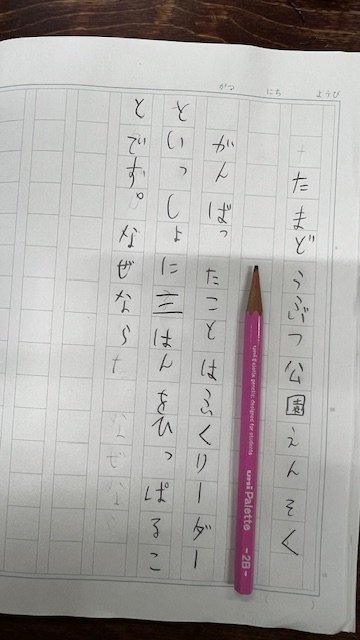 がつ にち ようび
たまどうぶつ公園えんそく
がんばったことはふくリーダー
といっしょに三はんをひっぱるこ
とです。なぜなら
uni Palette -2B-